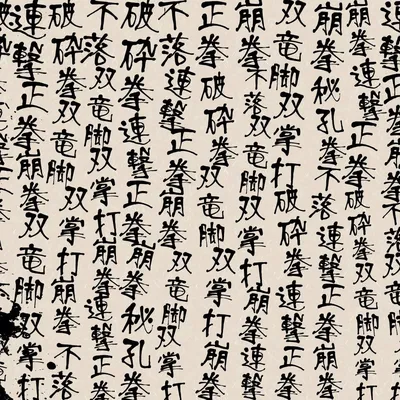 連撃正拳崩拳不落双竜脚
崩拳連撃正拳破砕拳双竜脚双掌打
崩拳秘孔拳不落連撃正拳崩拳
双竜脚双掌打破砕拳連撃正拳
崩拳不落双竜脚双掌打崩拳連撃
正拳破砕拳双竜脚双掌打崩拳
不落連撃正拳崩拳双竜脚双掌打
破砕拳連撃正拳崩拳秘孔拳
不落双竜脚双掌打崩拳連撃正拳
破砕拳双竜脚双掌打崩拳不落
連撃正拳崩拳双竜脚双掌打